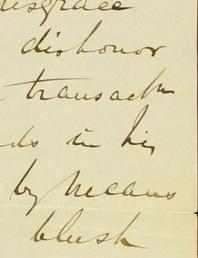 disgrace
dishonor
transactn
ds in his
by means
blush